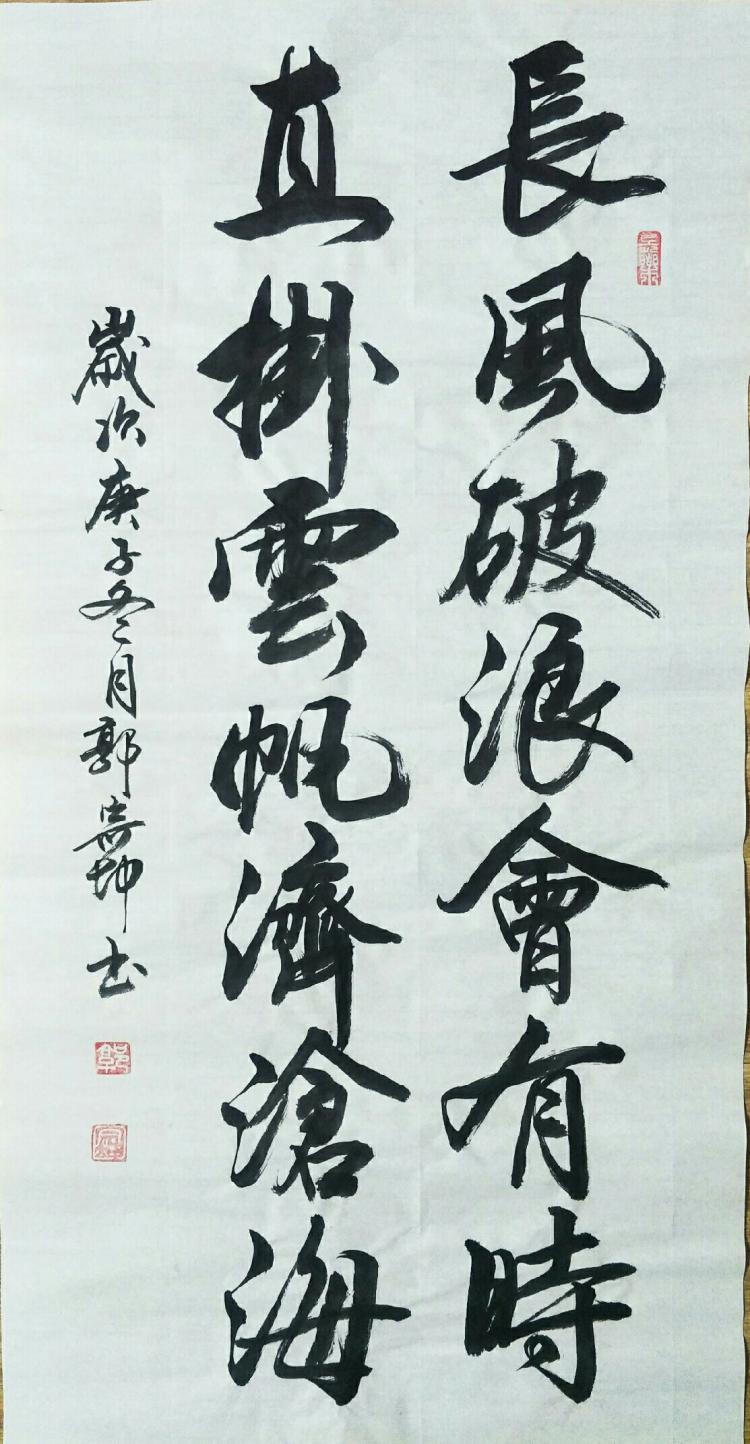 長風破浪會有時
直掛雲帆濟滄海
歲次庚子冬月郭坤书